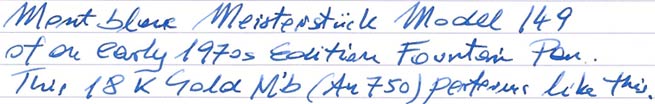 Montblanc Meisterstück Model 149
of an early 1970s Edition Fountain Pen.
This 18 K Gold Nib (Au 750) performs like this.